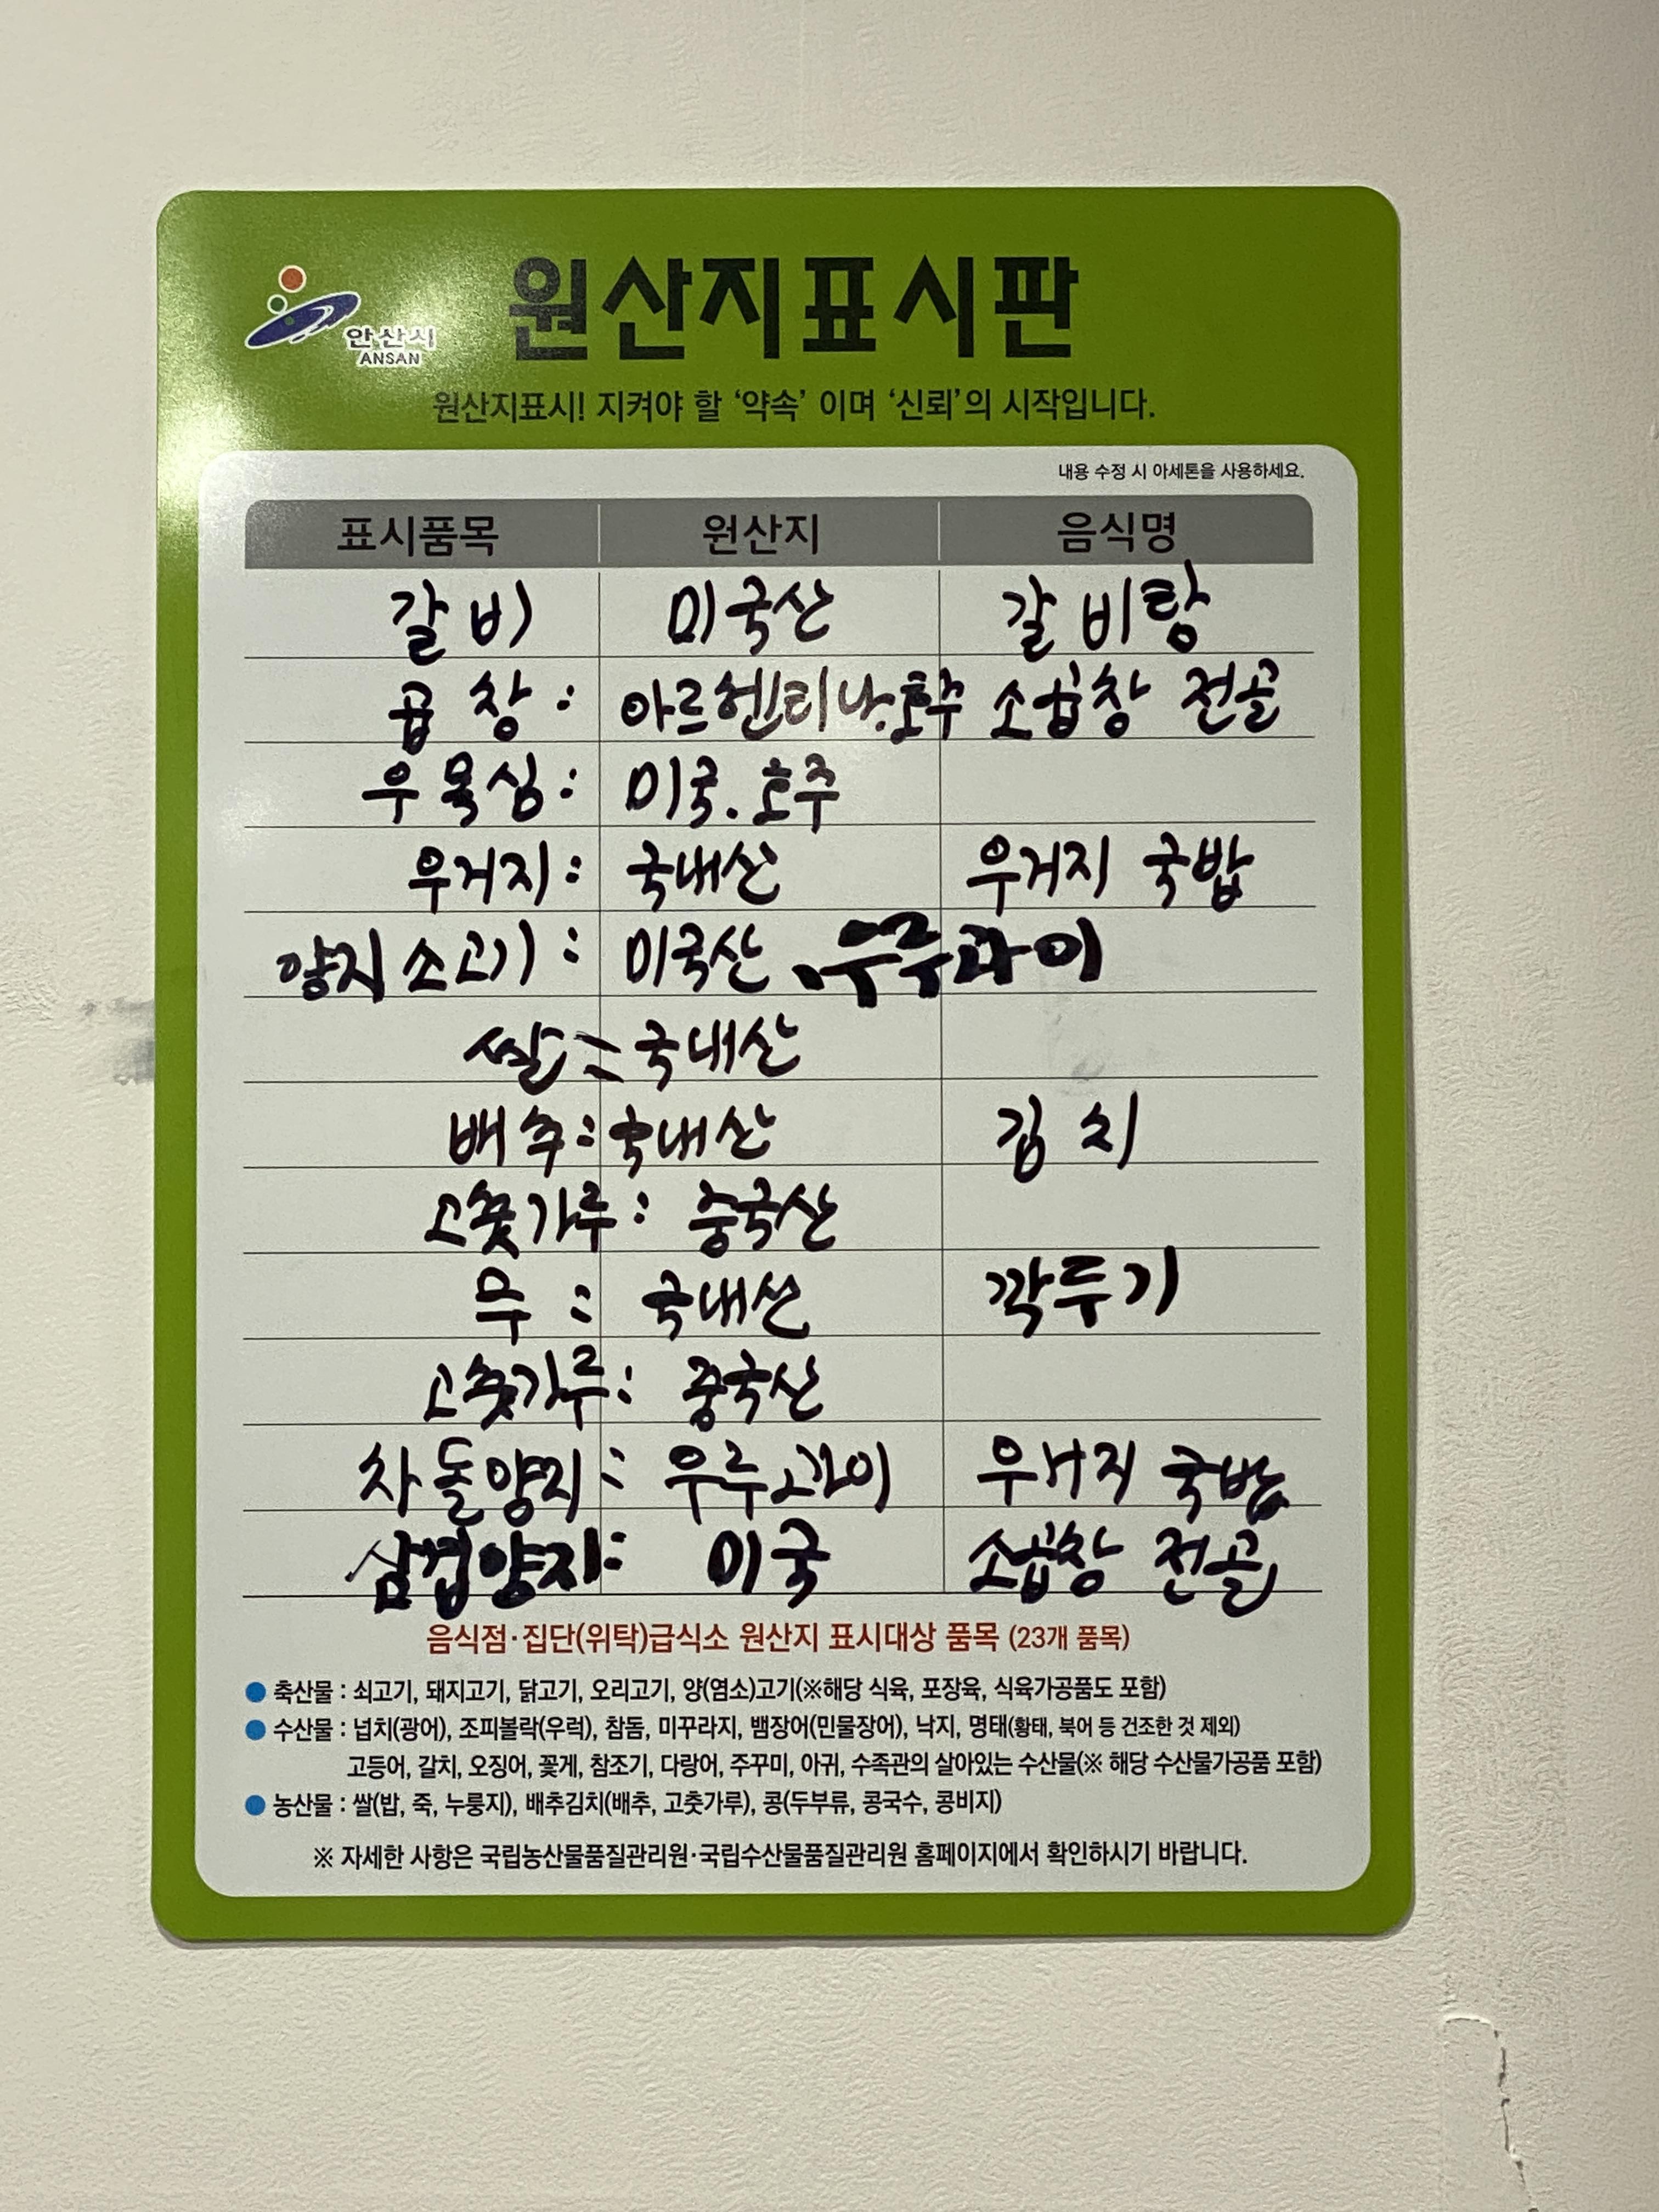 안산시
ANSAN
원산지표시판
원산지표시! 지켜야 할 ‘약속’ 이며 ‘신뢰’의 시작입니다.
내용 수정 시 아세톤을 사용하세요.
표시품목 원산지 음식명
갈비 미국산 갈비탕
곱창: 아르헨티나.호주 소곱창 전골
우목심: 미국.호주
우거지: 국내산 우거지 국밥
양지소고기: 미국산.우루과이
쌀: 국내산
배추: 국내산 김치
고춧가루: 중국산
무: 국내산 깍두기
고춧가루: 중국산
차돌양지: 우루과이 우거지 국밥
삼겹양지: 미국 소곱창 전골
음식점·집단(위탁)급식소 원산지 표시대상 품목 (23개 품목)
● 축산물 : 쇠고기, 돼지고기, 닭고기, 오리고기, 양(염소)고기(※해당 식육, 포장육, 식육가공품도 포함)
● 수산물 : 넙치(광어), 조피볼락(우럭), 참돔, 미꾸라지, 뱀장어(민물장어), 낙지, 명태(황태, 북어 등 건조한 것 제외)
고등어, 갈치, 오징어, 꽃게, 참조기, 다랑어, 주꾸미, 아귀, 수족관의 살아있는 수산물(※ 해당 수산물가공품 포함)
● 농산물 : 쌀(밥, 죽, 누룽지), 배추김치(배추, 고춧가루), 콩(두부류, 콩국수, 콩비지)
※ 자세한 사항은 국립농산물품질관리원·국립수산물품질관리원 홈페이지에서 확인하시기 바랍니다.